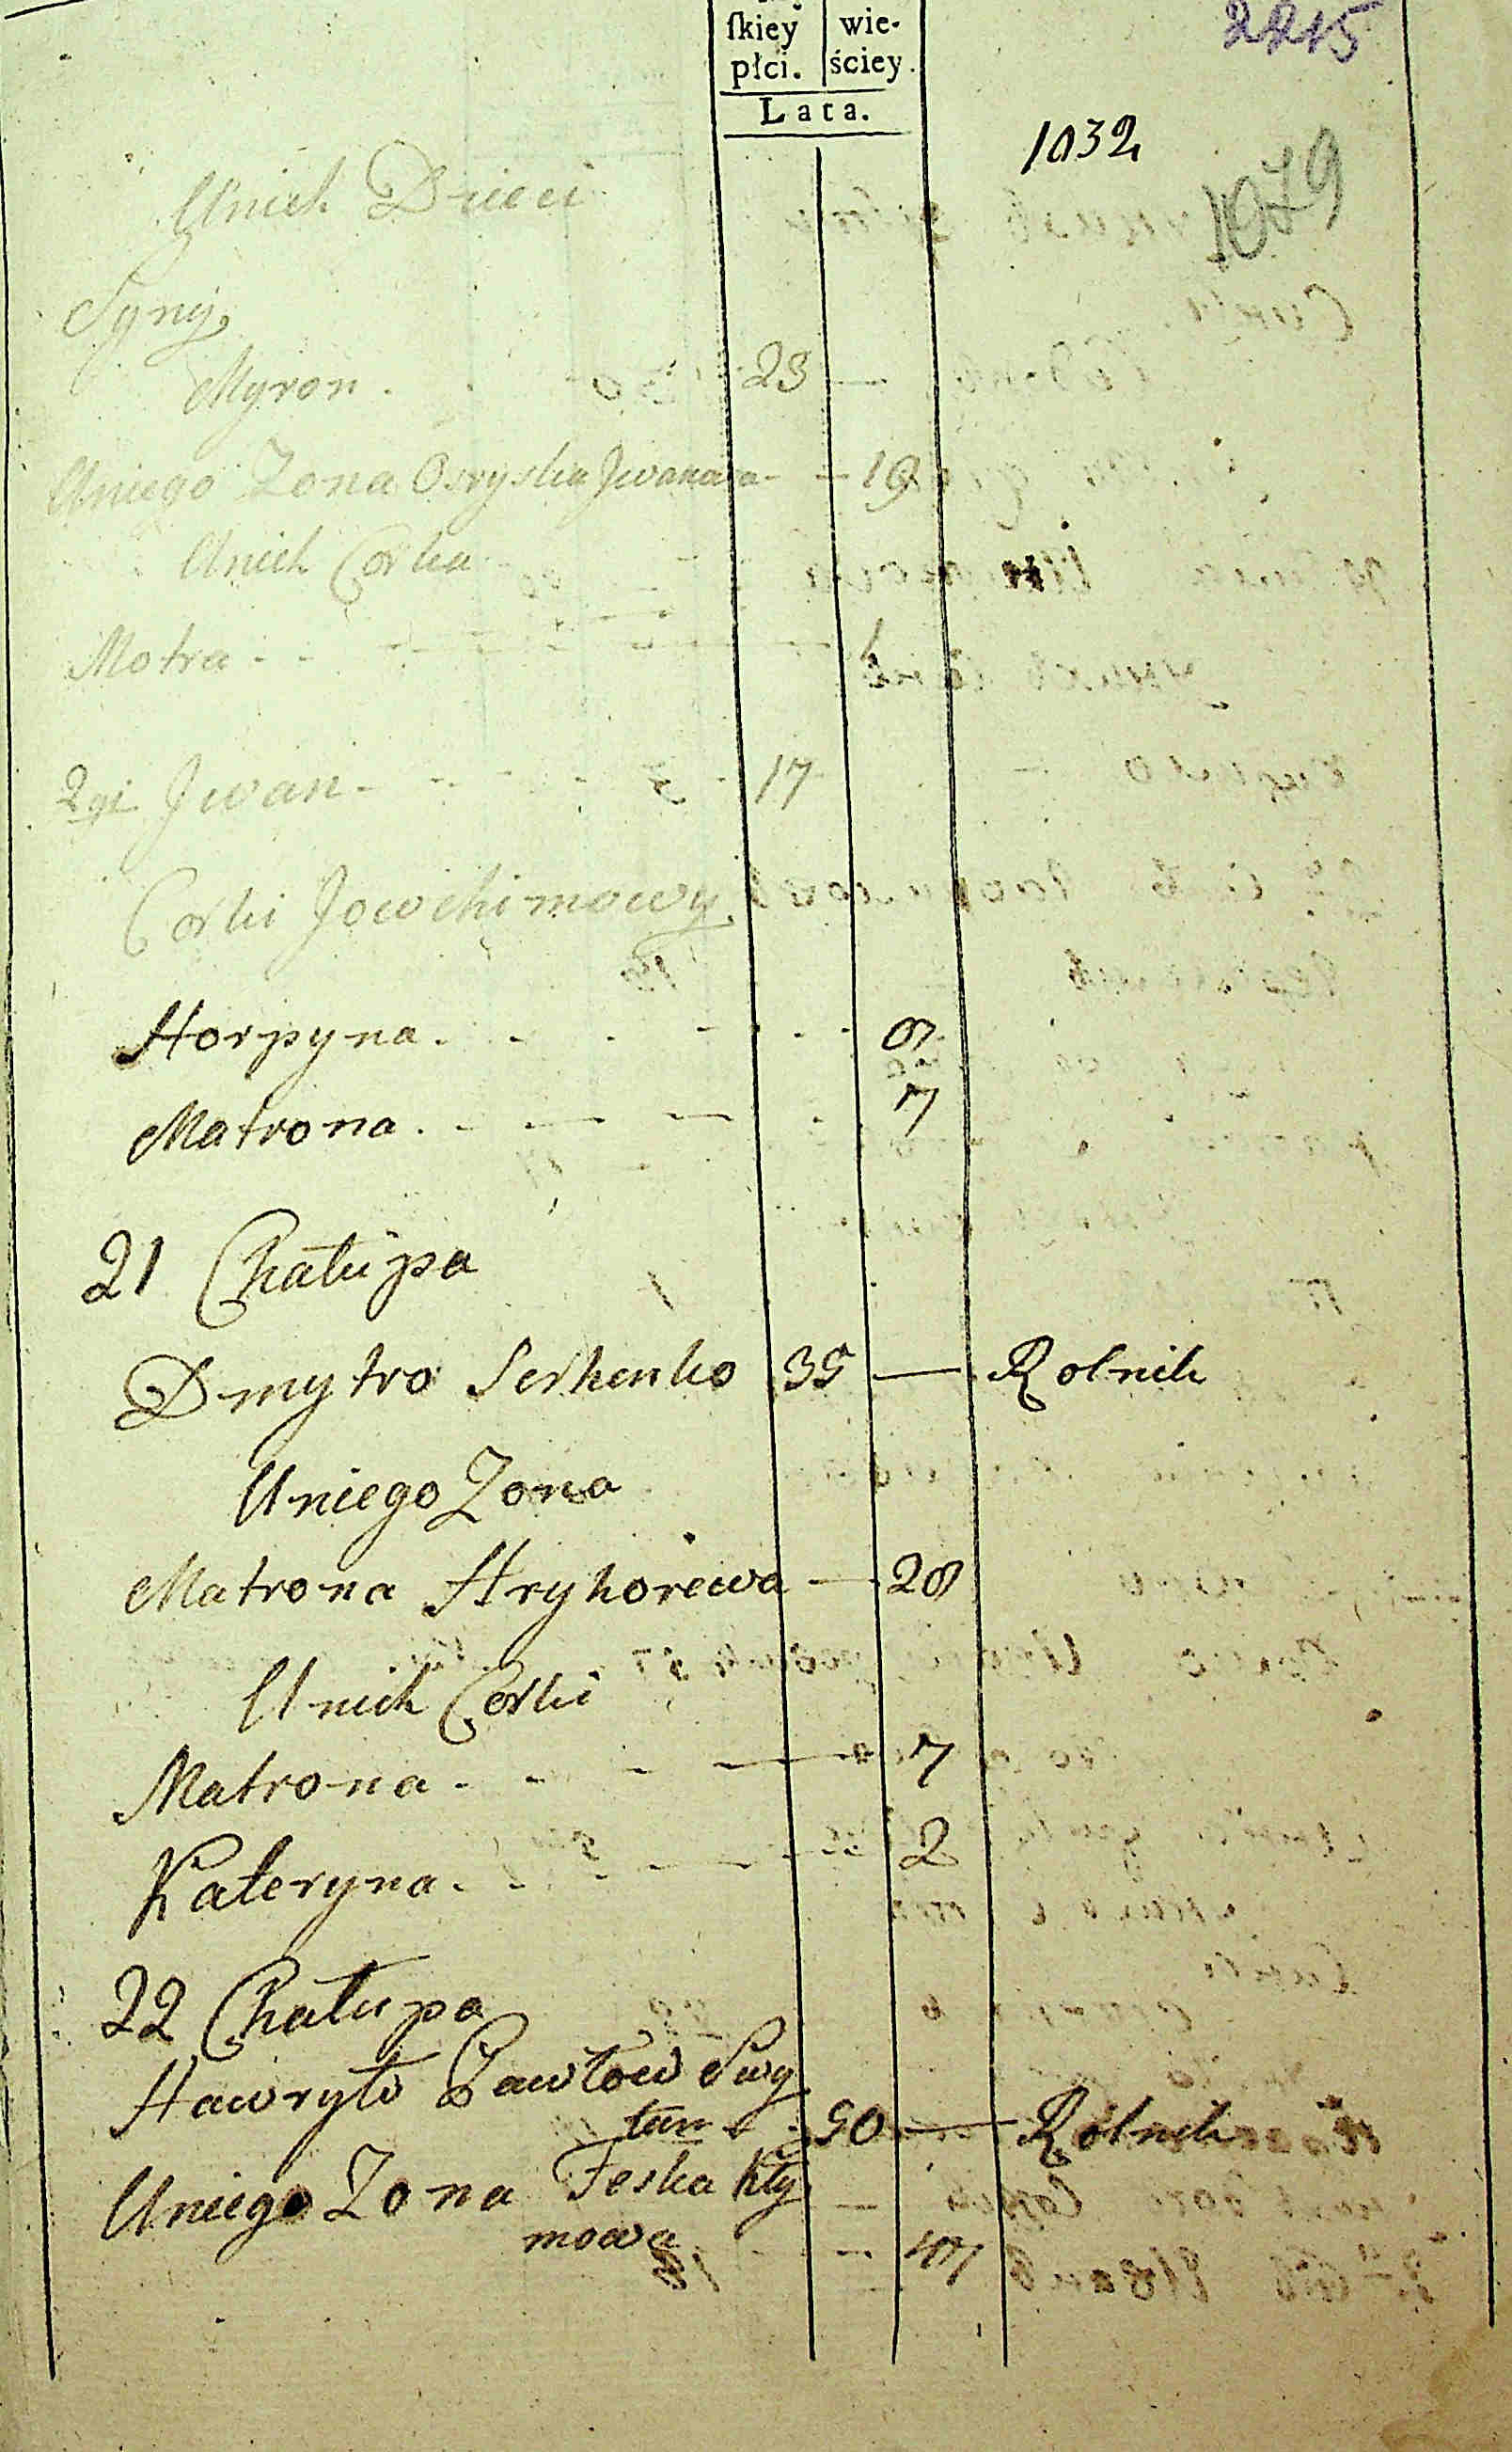 skiey wie-
płci. ściey.
Lata.
2215
1032
1079
Unich Dzieci
Syny
Myron 23 —
Uniego Zona Osryska Jwanowa — 19
Unich Corka
Motra 1
2gi Jwan 17
Corki Jowchimowy
Horpyna 9
Matrona 7
21 Chałupa
Dmytro Serhenko 35 — Rolnik
Uniego Zona
Matrona Hryhorewa — 28
Unich Corki
Matrona 7
Kateryna 2
22 Chałupa
Hawryło Pawłow Swy
tun 50 — Rolnik
Uniego Zona Feska Kły
mowa 47